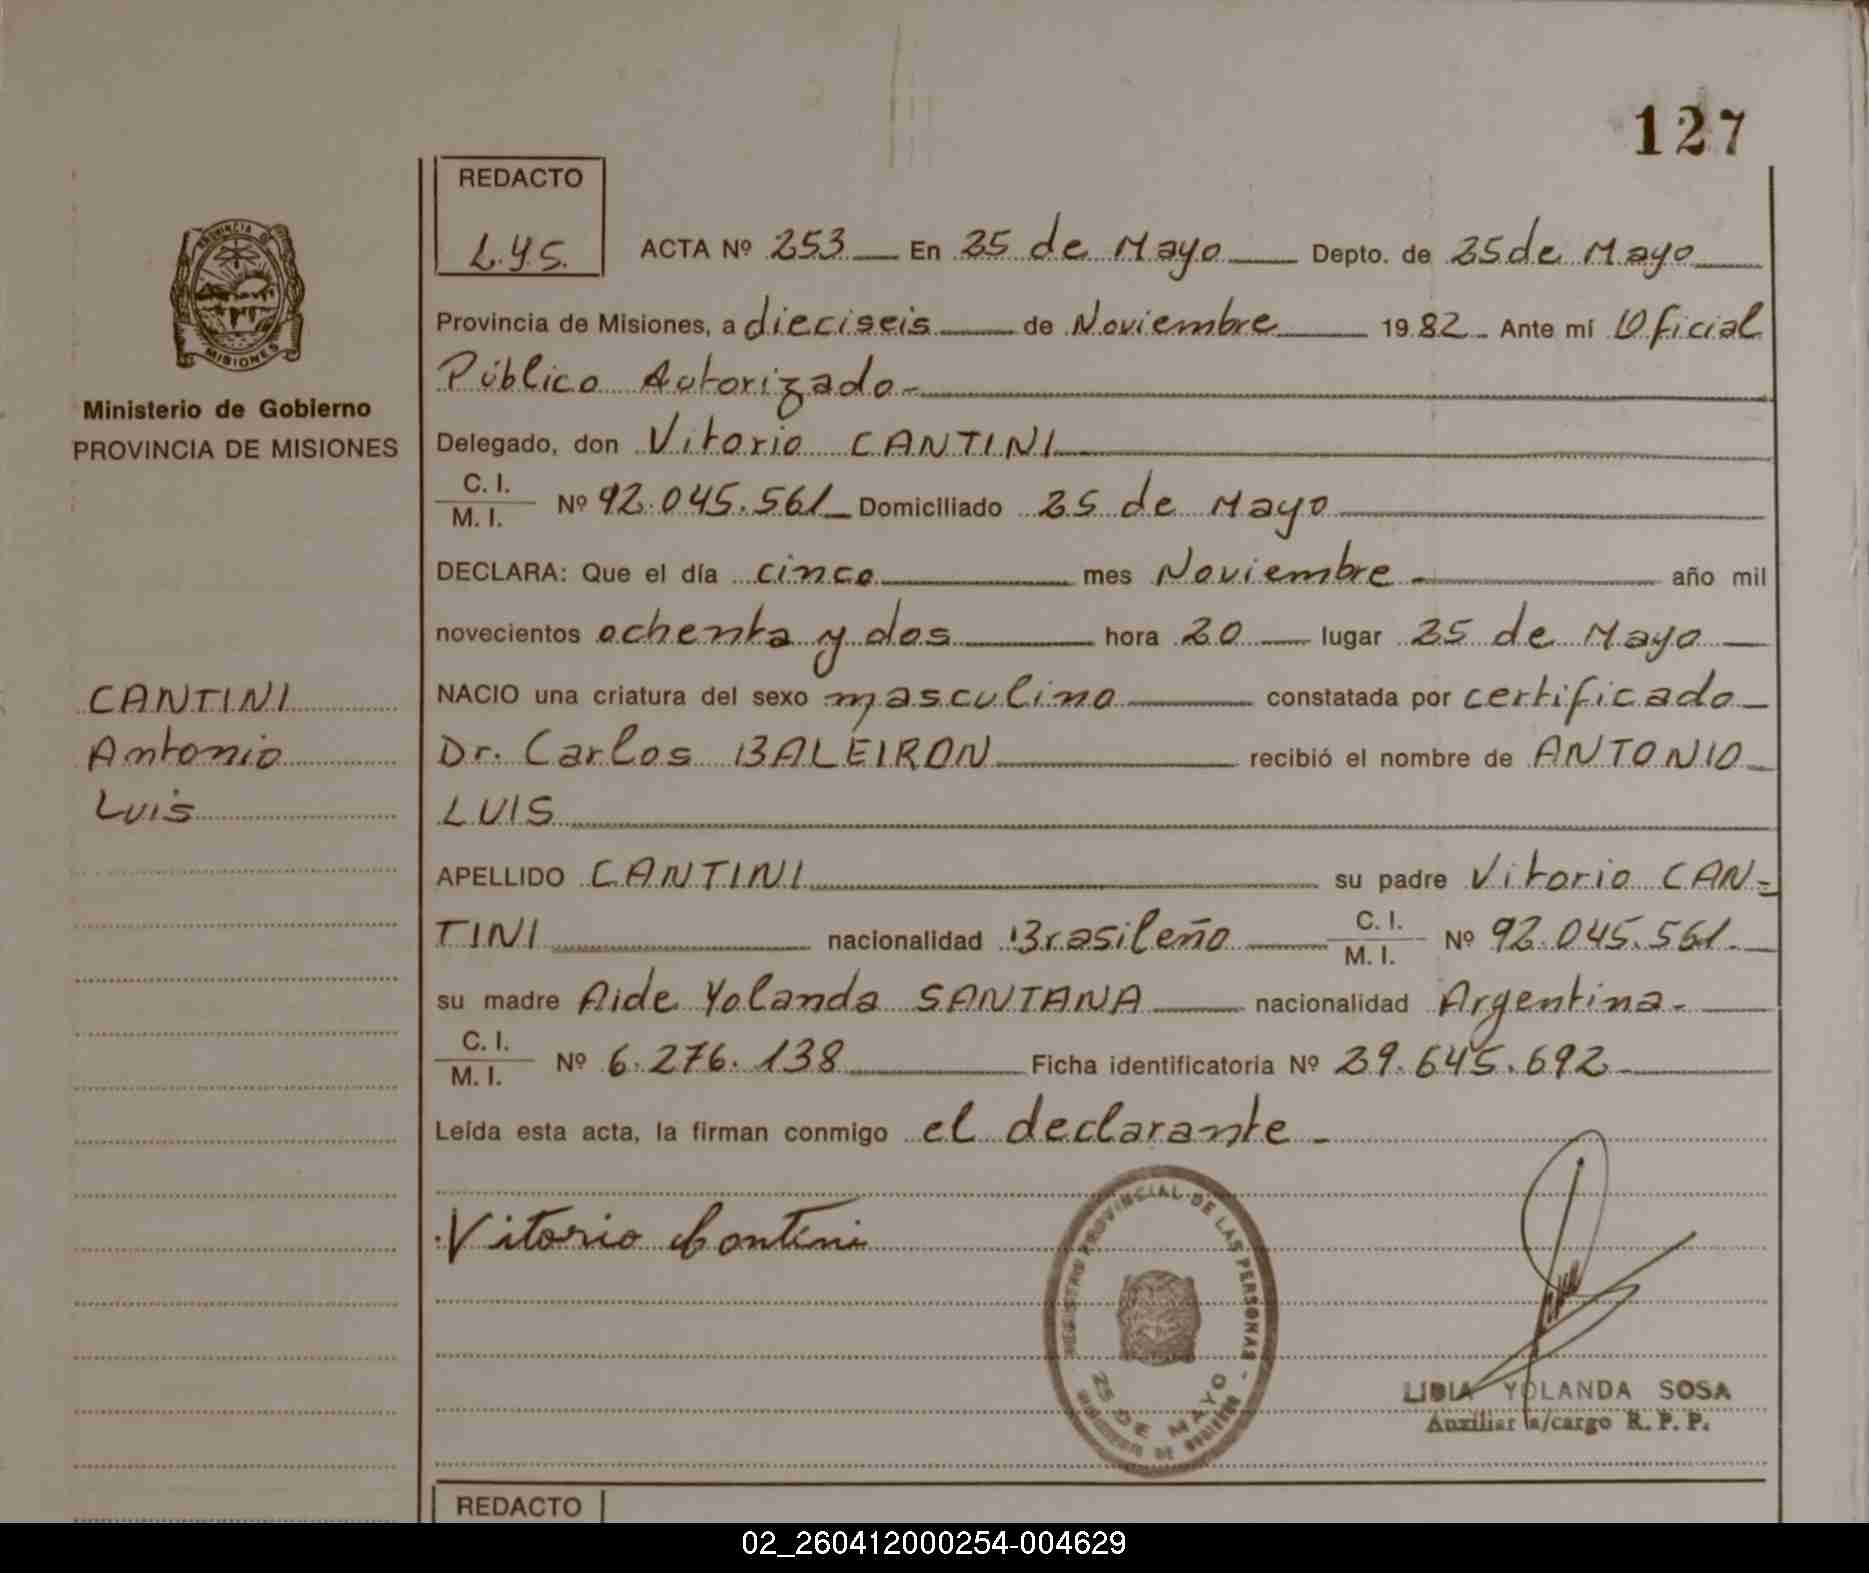 127
REDACTO
L.Y.S.
ACTA Nº 253 En 25 de Mayo Depto. de 25 de Mayo
Provincia de Misiones, a dieciseis de Noviembre 1982 Ante mí Oficial
Público Autorizado-
Delegado, don Vitorio CANTINI
C. I.
M. I. Nº 92.045.561 Domiciliado 25 de Mayo
DECLARA: Que el día cinco mes Noviembre año mil
novecientos ochenta y dos hora 20 lugar 25 de Mayo
NACIO una criatura del sexo masculino constatada por certificado
Dr. Carlos BALEIRON recibió el nombre de ANTONIO
LUIS
APELLIDO CANTINI su padre Vitorio CAN-
TINI nacionalidad Brasileño C. I. M. I. Nº 92.045.561.
su madre Aide Yolanda SANTANA nacionalidad Argentina-
C. I.
M. I. Nº 6.276.138 Ficha identificatoria Nº 29.645.692
Leída esta acta, la firman conmigo el declarante-
Vitorio Contini
REGISTRO PROVINCIAL DE LAS PERSONAS
25 DE MAYO
LIDIA YOLANDA SOSA
Auxiliar a/cargo R. P. P.
REDACTO
PROVINCIA DE
MISIONES
Ministerio de Gobierno
PROVINCIA DE MISIONES
CANTINI
Antonio
Luis
02_260412000254-004629